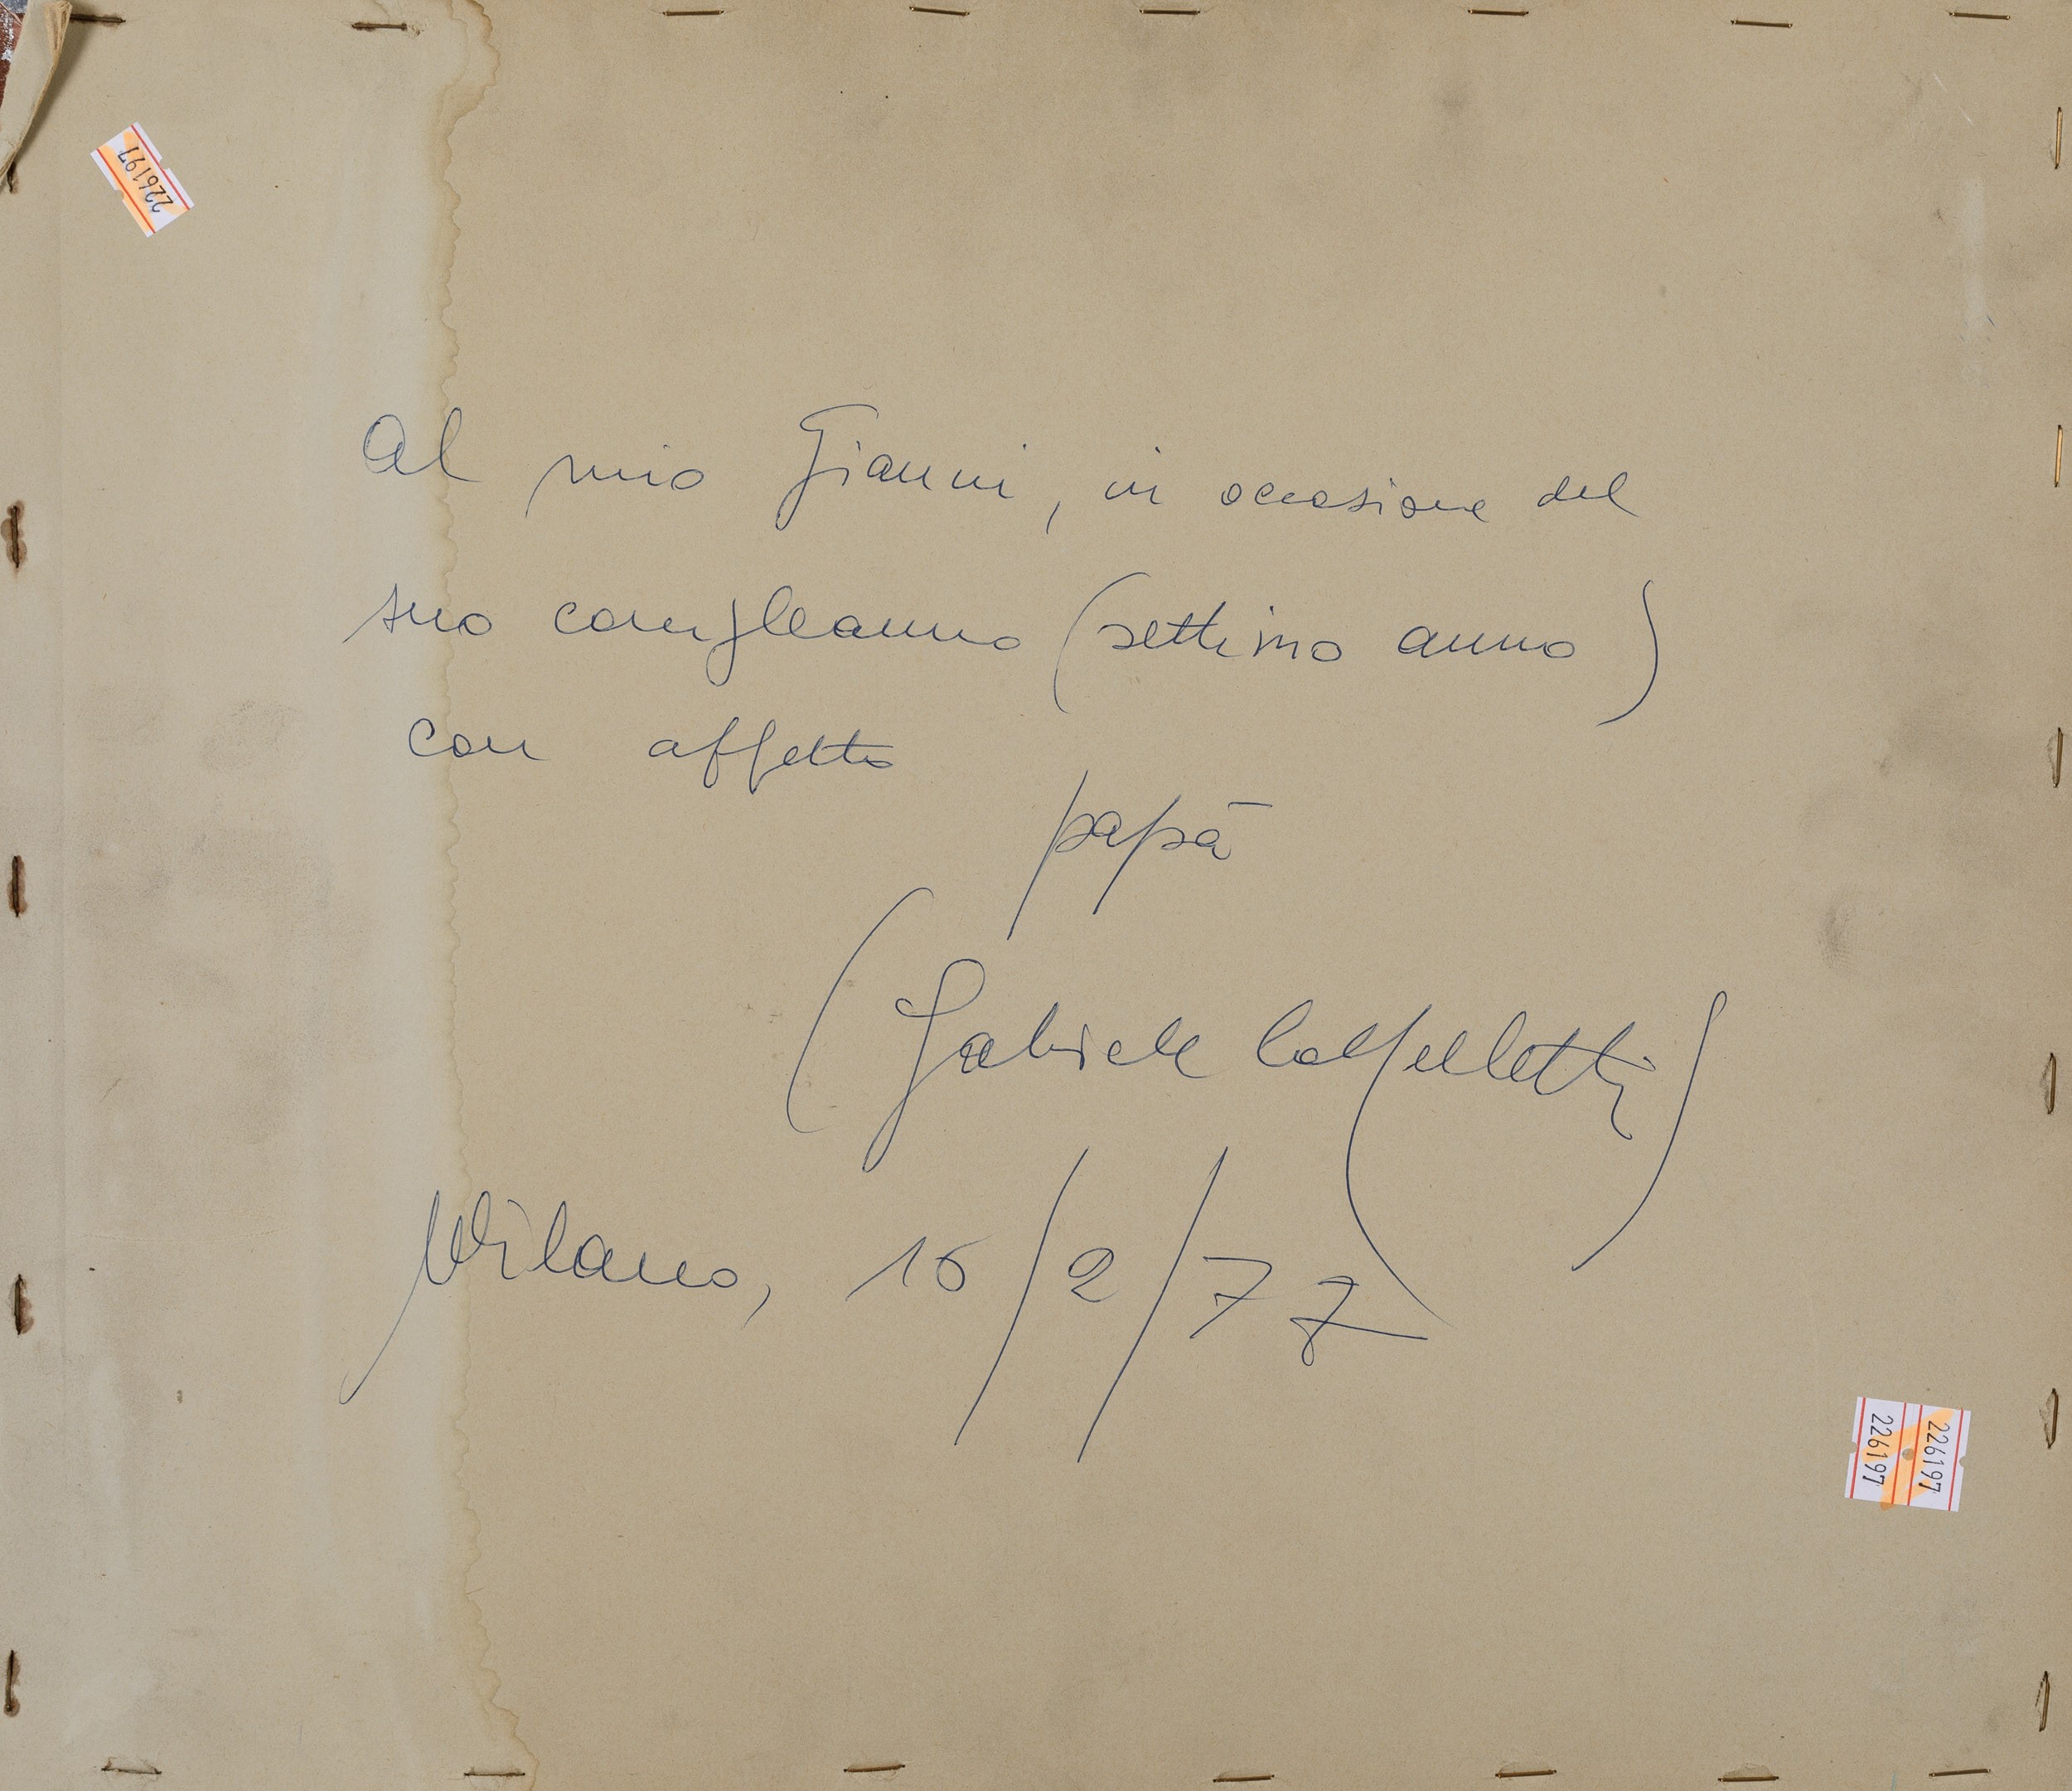 226197
Al mio Gianni, in occasione del
suo compleanno (settimo anno)
con affetto
papà
(Gabriele
Milano, 16/2/77
226197
226197